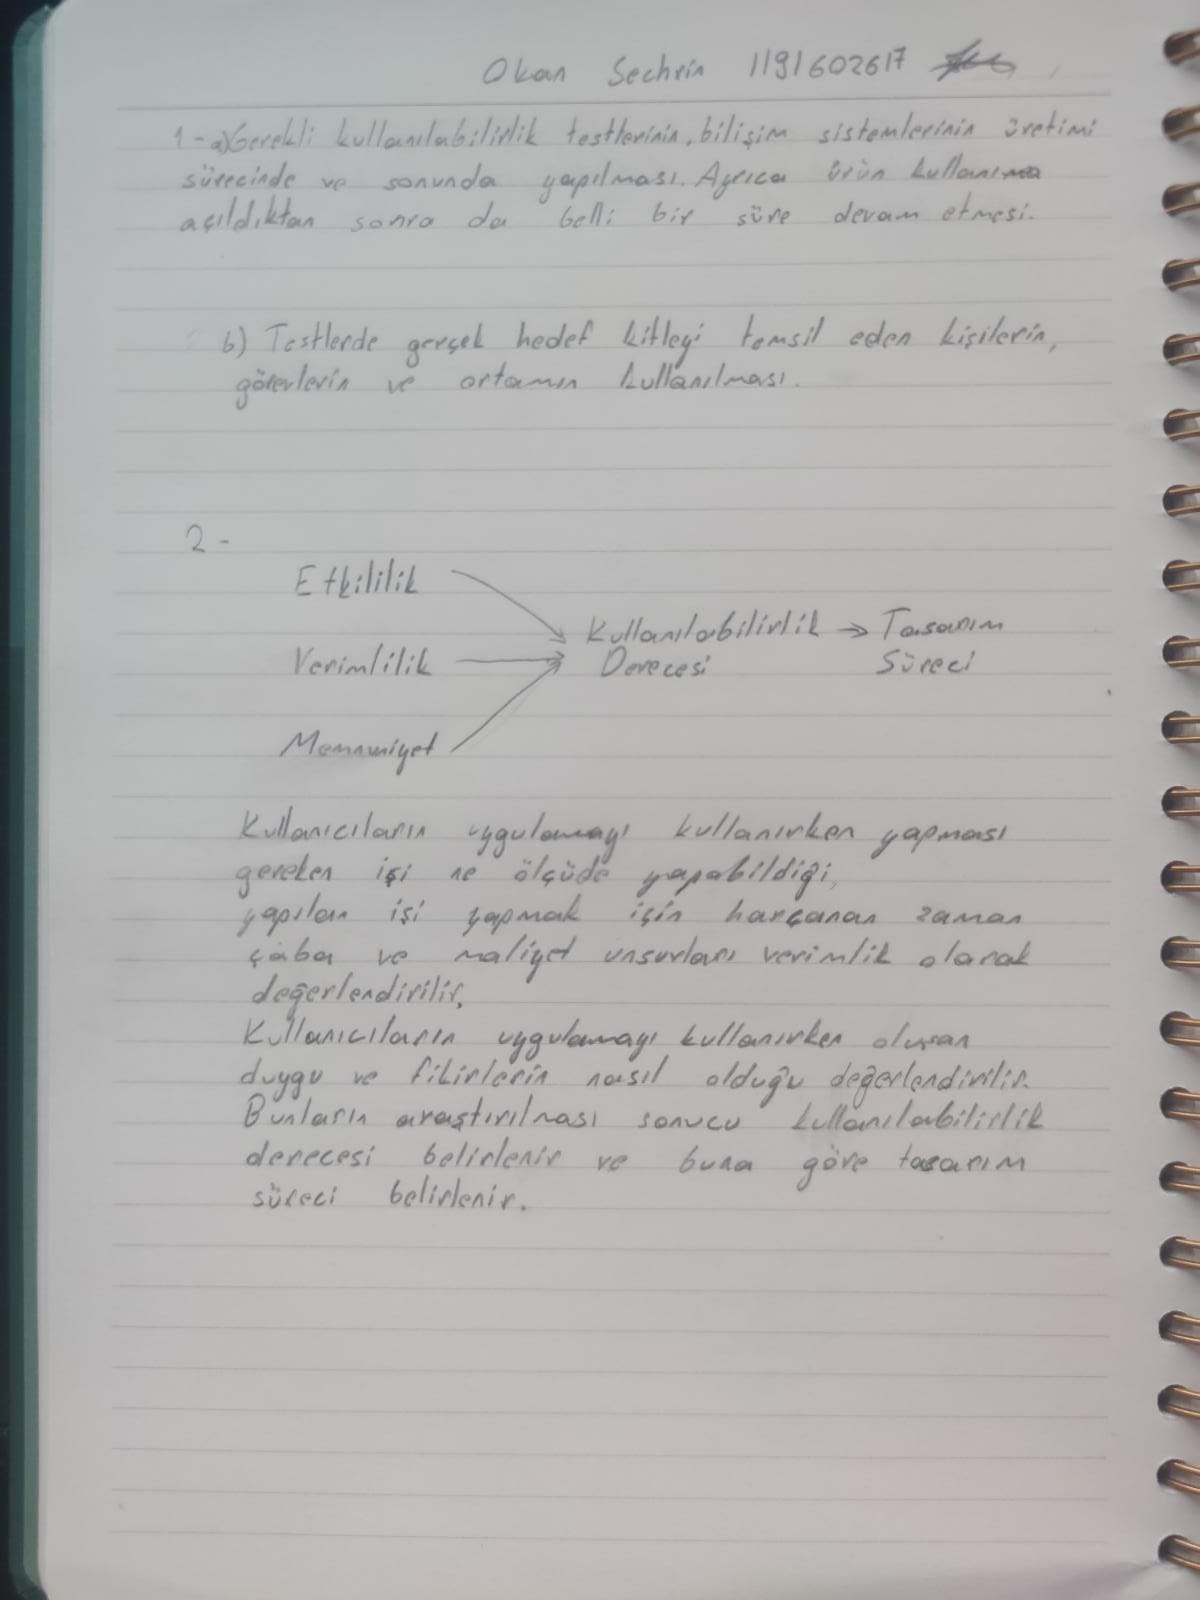 Okan Sechrin 1191602617
1-a) Gerekli kullanılabilirlik testlerinin, bilişim sistemlerinin üretimi
sürecinde ve sonunda yapılması. Ayrıca ürün kullanıma
açıldıktan sonra da belli bir süre devam etmesi.
b) Testlerde gerçek hedef kitleyi temsil eden kişilerin,
görevlerin ve ortamın kullanılması.
2-
Etkililik
Kullanılabilirlik → Tasarım
Verimlilik Derecesi Süreci
Memnuniyet
Kullanıcıların uygulamayı kullanırken yapması
gereken işi ne ölçüde yapabildiği,
yapılan işi yapmak için harcanan zaman
çaba ve maliyet unsurları verimlik olarak
değerlendirilir.
Kullanıcıların uygulamayı kullanırken oluşan
duygu ve fikirlerin nasıl olduğu değerlendirilir.
Bunların araştırılması sonucu kullanılabilirlik
derecesi belirlenir ve buna göre tasarım
süreci belirlenir.